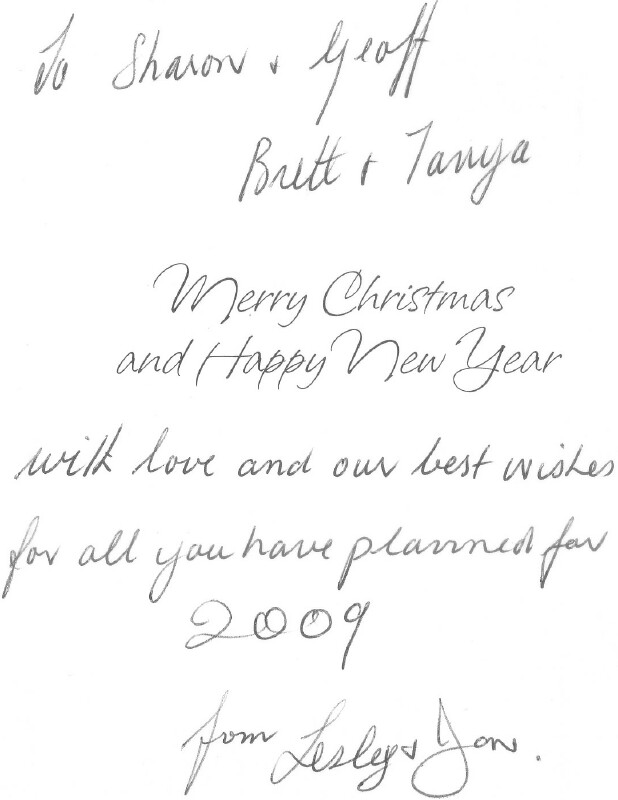 To Sharon + Geoff
Brett + Tanya
Merry Christmas
and Happy New Year
with love and our best wishes
for all you have planned for
2009
from Lesley + Don.